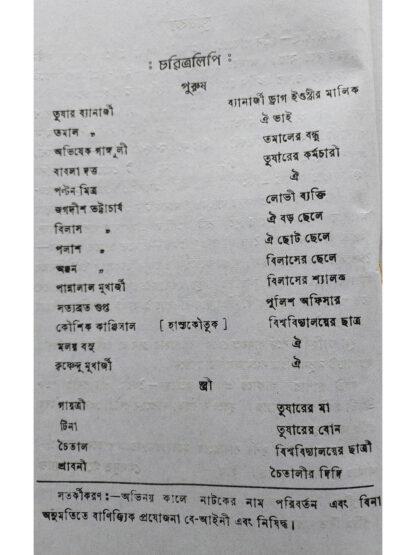 : চরিত্রলিপি :
পুরুষ
তুষার ব্যানার্জী ব্যানার্জী ড্রাগ ইণ্ডষ্ট্রীর মালিক
তমাল " ঐ ভাই
অভিষেক গাঙ্গুলী তমালের বন্ধু
বাবলা দত্ত তুষারের কর্মচারী
পল্টন মিত্র ঐ
জগদীশ ভট্টাচার্য লোভী ব্যক্তি
বিলাস " ঐ বড় ছেলে
পলাশ " ঐ ছোট ছেলে
অঞ্জন " বিলাসের ছেলে
পান্নালাল মুখার্জী বিলাসের শ্যালক
সত্যব্রত গুপ্ত পুলিশ অফিসার
কৌশিক কাঞ্জিলাল [ হাস্যকৌতুক ] বিশ্ববিদ্যালয়ের ছাত্র
মলয় বসু ঐ
কৃষ্ণেন্দু মুখার্জী ঐ
স্ত্রী
গায়ত্রী তুষারের মা
টিনা তুষারের বোন
চৈতালি বিশ্ববিদ্যালয়ের ছাত্রী
শ্রাবনী চৈতালীর দিদি
সতর্কীকরণ :—অভিনয় কালে নাটকের নাম পরিবর্তন এবং বিনা
অনুমতিতে বাণিজ্যিক প্রযোজনা বে-আইনী এবং নিষিদ্ধ।